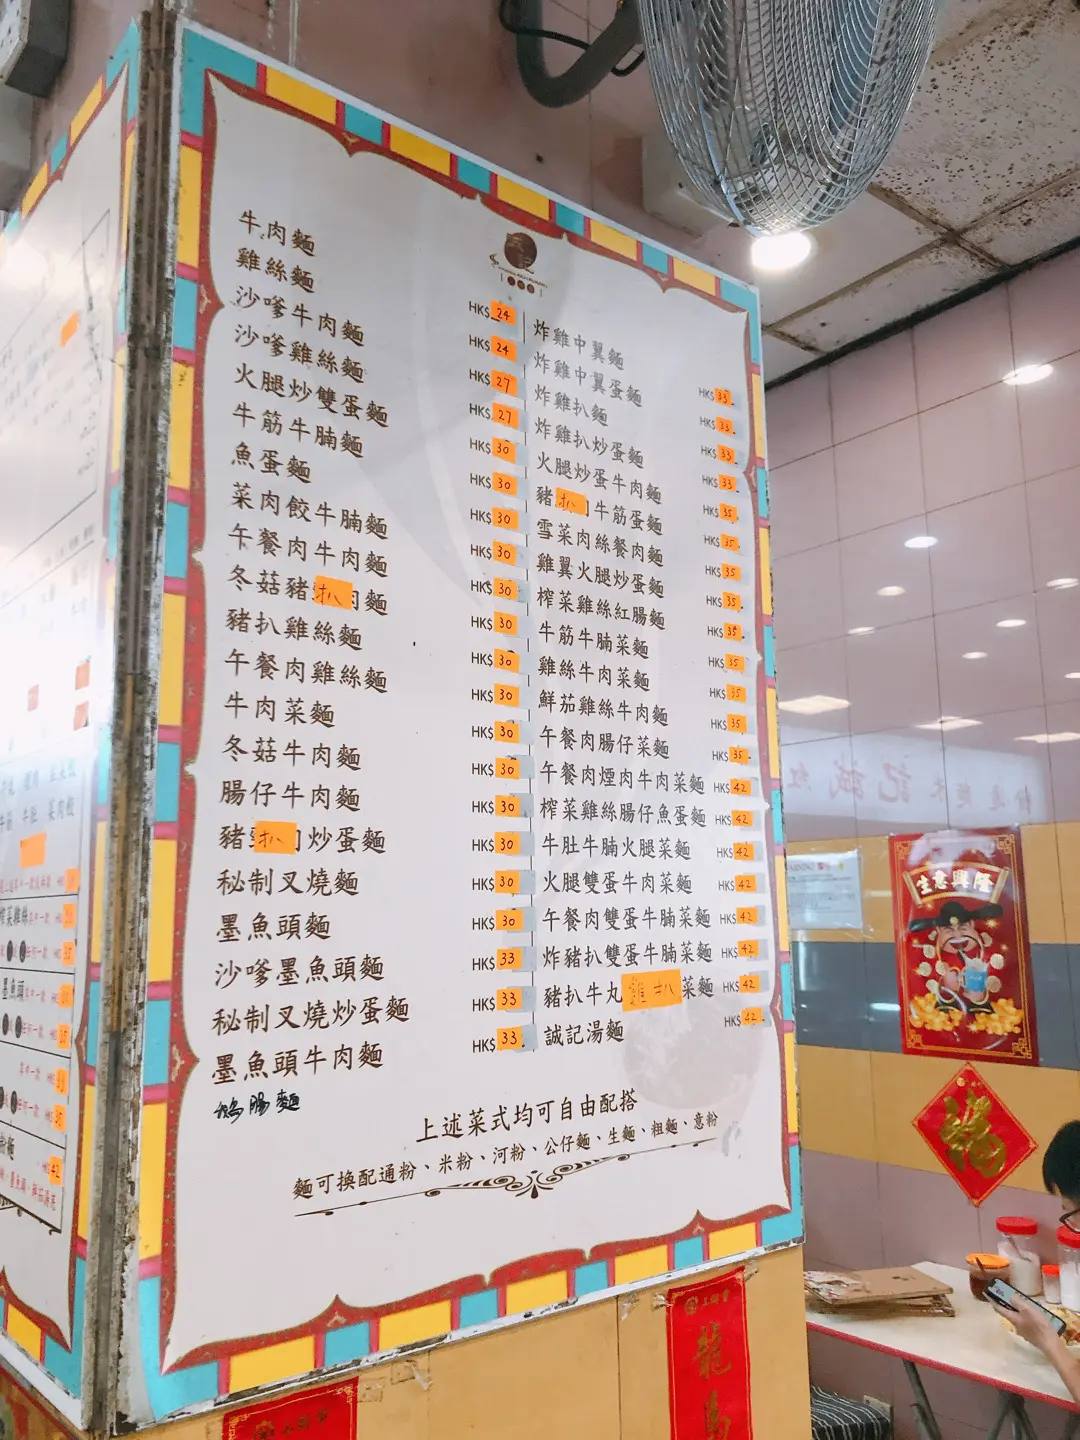 牛肉麵
雞絲麵
沙嗲牛肉麵
沙嗲雞絲麵
火腿炒雙蛋麵
牛筋牛腩麵
魚蛋麵
菜肉餃牛腩麵
午餐肉牛肉麵
冬菇豬扒麵
豬扒雞絲麵
午餐肉雞絲麵
牛肉菜麵
冬菇牛肉麵
腸仔牛肉麵
豬扒炒蛋麵
秘制叉燒麵
墨魚頭麵
沙嗲墨魚頭麵
秘制叉燒炒蛋麵
墨魚頭牛肉麵
鴨腸麵
HK$ 24
HK$ 24
HK$ 27
HK$ 27
HK$ 30
HK$ 30
HK$ 30
HK$ 30
HK$ 30
HK$ 30
HK$ 30
HK$ 30
HK$ 30
HK$ 30
HK$ 30
HK$ 30
HK$ 30
HK$ 30
HK$ 33
HK$ 33
HK$ 33
炸雞中翼麵
炸雞中翼蛋麵
炸雞扒麵
炸雞扒炒蛋麵
火腿炒蛋牛肉麵
豬扒牛筋蛋麵
雪菜肉絲餐肉麵
雞翼火腿炒蛋麵
榨菜雞絲紅腸麵
牛筋牛腩菜麵
雞絲牛肉菜麵
鮮茄雞絲牛肉麵
午餐肉腸仔菜麵
午餐肉煙肉牛肉菜麵
榨菜雞絲腸仔魚蛋麵
牛肚牛腩火腿菜麵
火腿雙蛋牛肉菜麵
午餐肉雙蛋牛腩菜麵
炸豬扒雙蛋牛腩菜麵
豬扒牛丸雞扒菜麵
誠記湯麵
HK$ 33.
HK$ 33.
HK$ 33
HK$ 33
HK$ 35.
HK$ 35.
HK$ 35
HK$ 35.
HK$ 35.
HK$ 35
HK$ 35
HK$ 35.
HK$ 35.
HK$ 42
HK$ 42.
HK$ 42
HK$ 42.
HK$ 42.
HK$ 42.
HK$ 42.
HK$ 42.
上述菜式均可自由配搭
麵可換配通粉、米粉、河粉、公仔麵、生麵、粗麵、意粉
生意興隆
福
龍馬